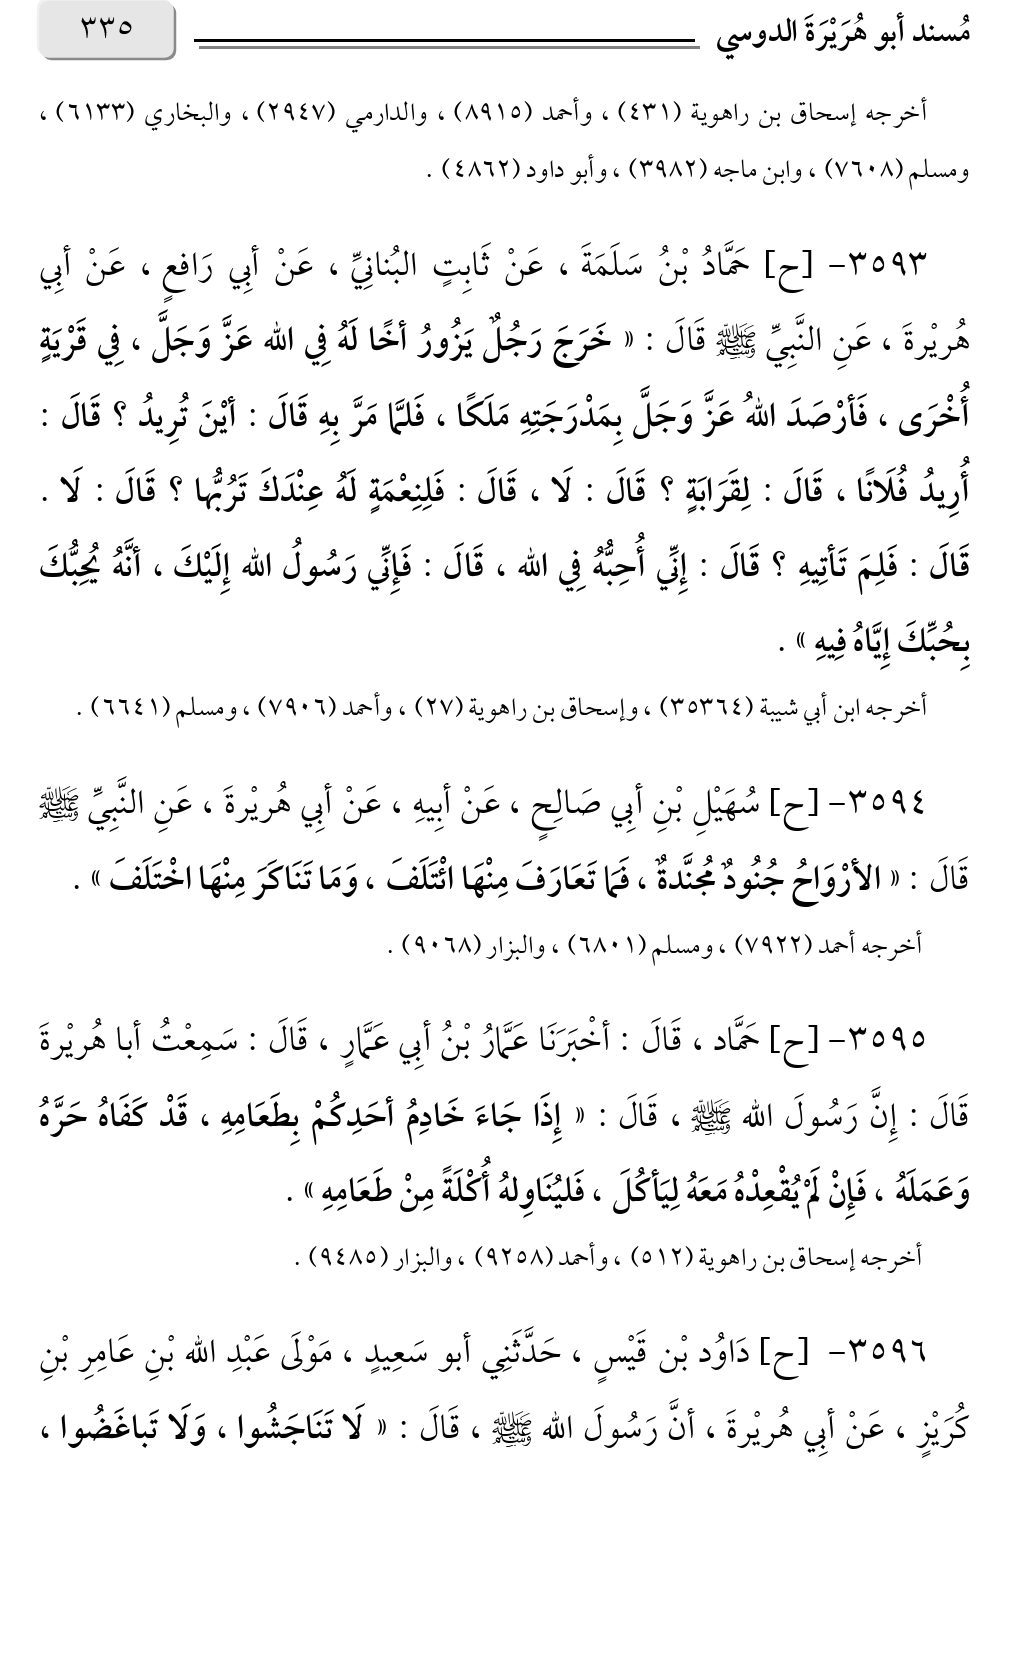 مُسند أبو هُرَيْرَةَ الدوسي
٣٣٥
أخرجه إسحاق بن راهوية (٤٣١) ، وأحمد (٨٩١٥) ، والدارمي (٢٩٤٧) ، والبخاري (٦١٣٣) ،
ومسلم (٧٦٠٨) ، وابن ماجه (٣٩٨٢) ، وأبو داود (٤٨٦٢) .
٣٥٩٣- [ح] حَمَّادُ بْنُ سَلَمَةَ ، عَنْ ثَابِتٍ البُنانِيِّ ، عَنْ أبِي رَافعٍ ، عَنْ أبِي
هُريْرةَ ، عَنِ النَّبِيِّ ﷺ قَالَ : « خَرَجَ رَجُلٌ يَزُورُ أخًا لَهُ فِي الله عَزَّ وَجَلَّ ، فِي قَرْيَةٍ
أُخْرَى ، فَأرْصَدَ اللهُ عَزَّ وَجَلَّ بِمَدْرَجَتِهِ مَلَكًا ، فَلمَّا مَرَّ بِهِ قَالَ : أيْنَ تُرِيدُ ؟ قَالَ :
أُرِيدُ فُلَانًا ، قَالَ : لِقَرَابَةٍ ؟ قَالَ : لَا ، قَالَ : فَلِنِعْمَةٍ لَهُ عِنْدَكَ تَرُبُّها ؟ قَالَ : لَا .
قَالَ : فَلِمَ تَأتِيهِ ؟ قَالَ : إنِّي أُحِبُّهُ فِي الله ، قَالَ : فَإنِّي رَسُولُ الله إلَيْكَ ، أنَّهُ يُحِبُّكَ
بِحُبِّكَ إيَّاهُ فِيهِ » .
أخرجه ابن أبي شيبة (٣٥٣٦٤) ، وإسحاق بن راهوية (٢٧) ، وأحمد (٧٩٠٦) ، ومسلم (٦٦٤١) .
٣٥٩٤- [ح] سُهَيْلِ بْنِ أبِي صَالِحٍ ، عَنْ أبِيهِ ، عَنْ أبِي هُريْرةَ ، عَنِ النَّبِيِّ ﷺ
قَالَ : « الأرْوَاحُ جُنُودٌ مُجنَّدةٌ ، فَما تَعَارَفَ مِنْهَا ائْتَلَفَ ، وَمَا تَنَاكَرَ مِنْهَا اخْتَلَفَ » .
أخرجه أحمد (٧٩٢٢) ، ومسلم (٦٨٠١) ، والبزار (٩٠٦٨) .
٣٥٩٥- [ح] حَمَّاد ، قَالَ : أخْبَرَنَا عَمَّارُ بْنُ أبِي عَمَّارٍ ، قَالَ : سَمِعْتُ أبا هُريْرةَ
قَالَ : إنَّ رَسُولَ الله ﷺ ، قَالَ : « إذَا جَاءَ خَادِمُ أحَدِكُمْ بِطَعَامِهِ ، قَدْ كَفَاهُ حَرَّهُ
وَعَمَلَهُ ، فَإنْ لَمْ يُقْعِدْهُ مَعَهُ لِيَأكُلَ ، فَليُنَاوِلهُ أُكْلَةً مِنْ طَعَامِهِ » .
أخرجه إسحاق بن راهوية (٥١٢) ، وأحمد (٩٢٥٨) ، والبزار (٩٤٨٥) .
٣٥٩٦- [ح] دَاوُد بْن قَيْسٍ ، حَدَّثَنِي أبو سَعِيدٍ ، مَوْلَى عَبْدِ الله بْنِ عَامِرِ بْنِ
كُرَيْزٍ ، عَنْ أبِي هُريْرةَ ، أنَّ رَسُولَ الله ﷺ ، قَالَ : « لَا تَنَاجَشُوا ، وَلَا تَباغَضُوا ،